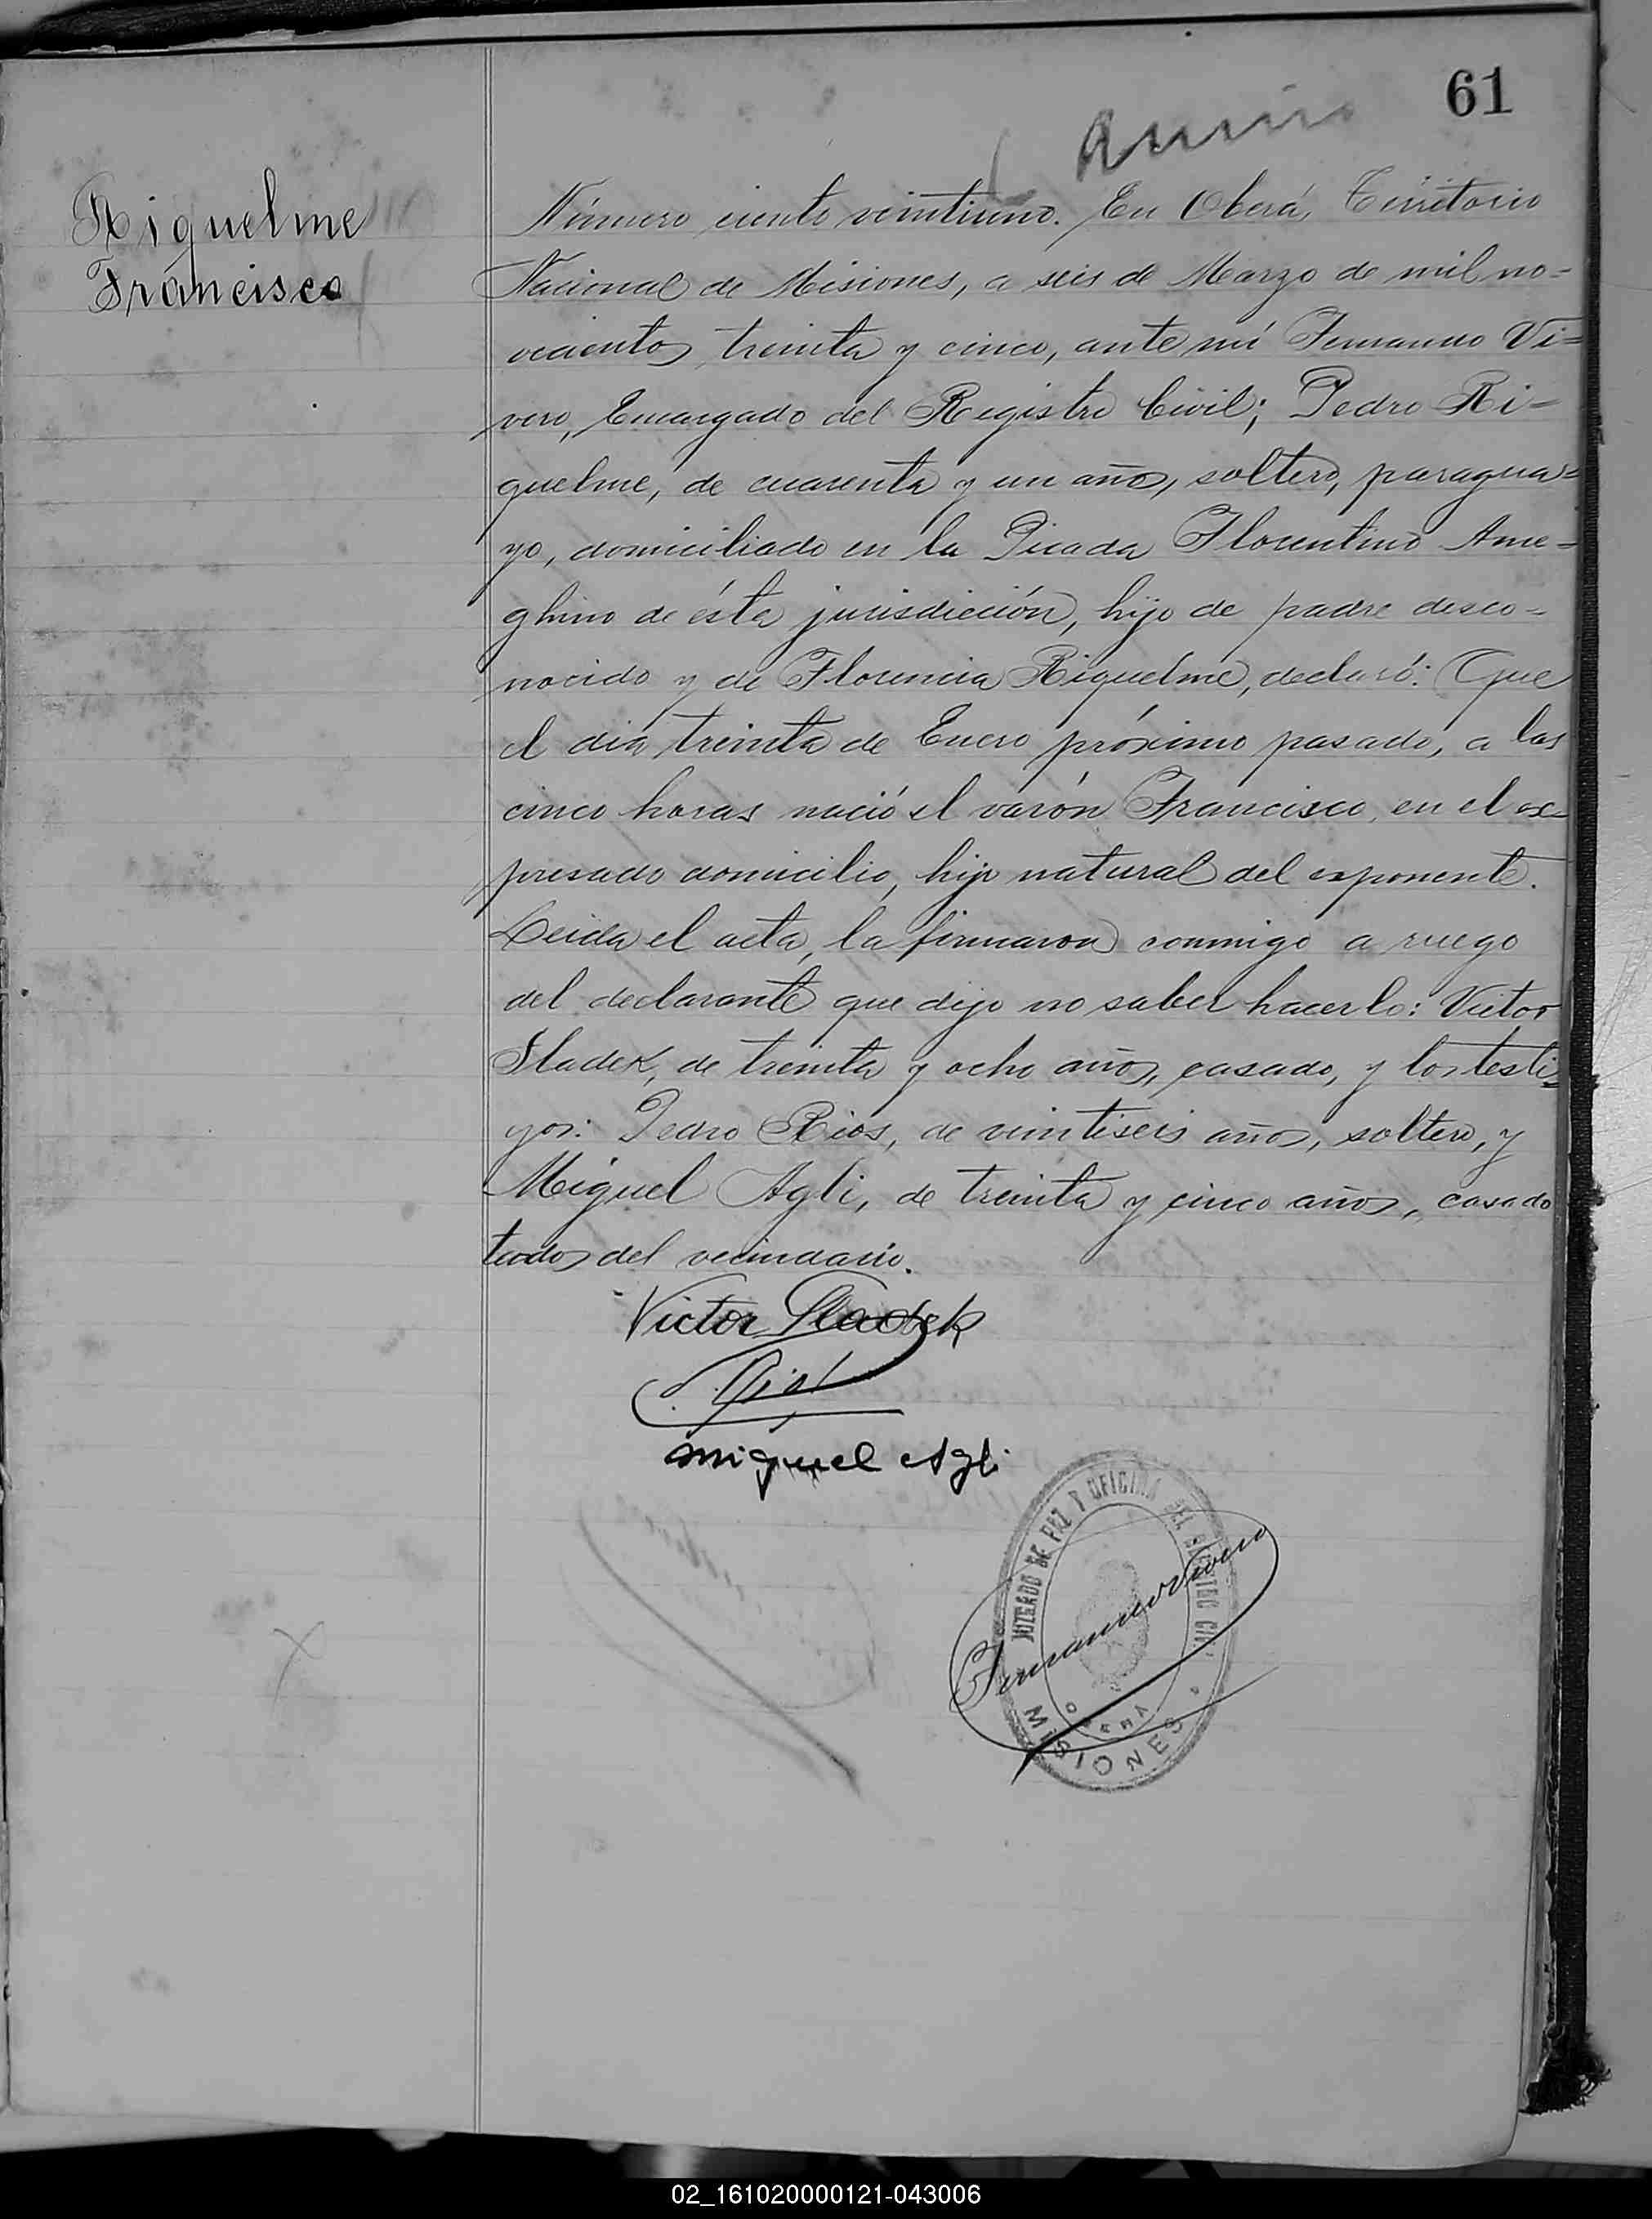 61
Riquelme
Francisco
Número ciento veintiuno. En Oberá, Territorio
Nacional de Misiones, a seis de Marzo de mil no-
vecientos treinta y cinco, ante mí Fernando Vi-
vero, Encargado del Registro Civil; Pedro Ri-
quelme, de cuarenta y un años, soltero, paragua-
yo, domiciliado en la Picada Florentino Ame-
ghino de ésta jurisdicción, hijo de padre desco-
nocido y de Florencia Riquelme, declaró: Que
el día treinta de Enero próximo pasado, a las
cinco horas nació el varón Francisco, en el ex-
presado domicilio, hijo natural del exponente.
Leida el acta, la firmaron conmigo a ruego
del declarante que dijo no saber hacerlo: Victor
Sladek, de treinta y ocho años, casado, y los testi-
gos: Pedro Rios, de veintiseis años, soltero, y
Miguel Agli, de treinta y cinco años, casado
todos del vecindario.
Victor Sladek
P. Rios
Miguel Agli
JUZGADO DE PAZ Y OFICINA DEL REGISTRO CIVIL
Fernando Vivero
OBERÁ
MISIONES
02_161020000121-043006